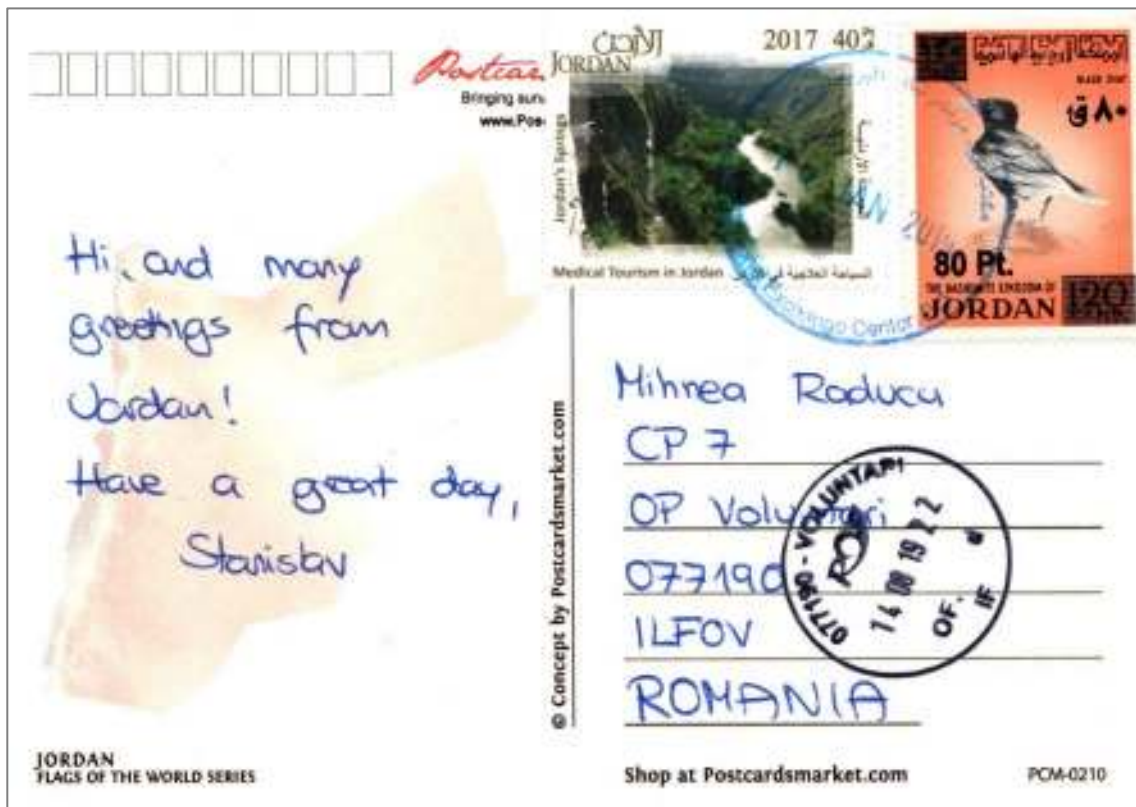 Postcar
Bringing sun
www.Pos
الأردن
JORDAN
2017 40
Jordan's Springs
Medical Tourism in Jordan السياحة العلاجية في الأردن
٨٠ ق
80 Pt.
THE HASHEMITE KINGDOM OF
JORDAN 120
AN 201
Exchange Center
Hi, and many
greetings from
Jordan!
Have a great day,
Stanislav
© Concept by Postcardsmarket.com
Mihnea Raducu
CP 7
OP Voluntari
077190
ILFOV
ROMANIA
077190 - VOLUNTARI
14 08 19 22
OF.
IF
JORDAN
FLAGS OF THE WORLD SERIES
Shop at Postcardsmarket.com
PCM-0210